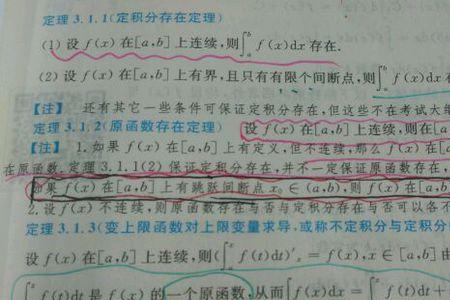 定理 3.1.1(定积分存在定理)
(1) 设 f(x) 在[a,b] 上连续,则∫_a^b f(x)dx 存在.
(2) 设 f(x) 在[a,b] 上有界,且只有有限个间断点,则∫_a^b f(x)dx
【注】 还有其它一些条件可保证定积分存在,但这些不在考试大
定理 3.1.2(原函数存在定理) 设 f(x) 在[a,b] 上连续,则在[a
【注】 1. 如果 f(x) 在[a,b] 上有定义,但不连续,那么 f(x) 在[
在原函数.定理 3.1.1(2) 保证定积分存在,并不一定保证原函数存在,
如果 f(x) 在[a,b] 上有跳跃间断点 x₀ ∈ (a,b),则 f(x) 在[a,b
2. 设 f(x) 不连续,则原函数存在与否与定积分存在与否可以各不
定理 3.1.3(变上限函数对上限变量求导,或称不定积分与定积分
设 f(x) 在[a,b] 上连续,则(∫_a^x f(t)dt)′ₓ = f(x),x ∈ [a,b] 由
∫_a^x f(t)dt 是 f(x) 的一个原函数,从而∫f(x)dx = ∫_a^x f(t)dt +